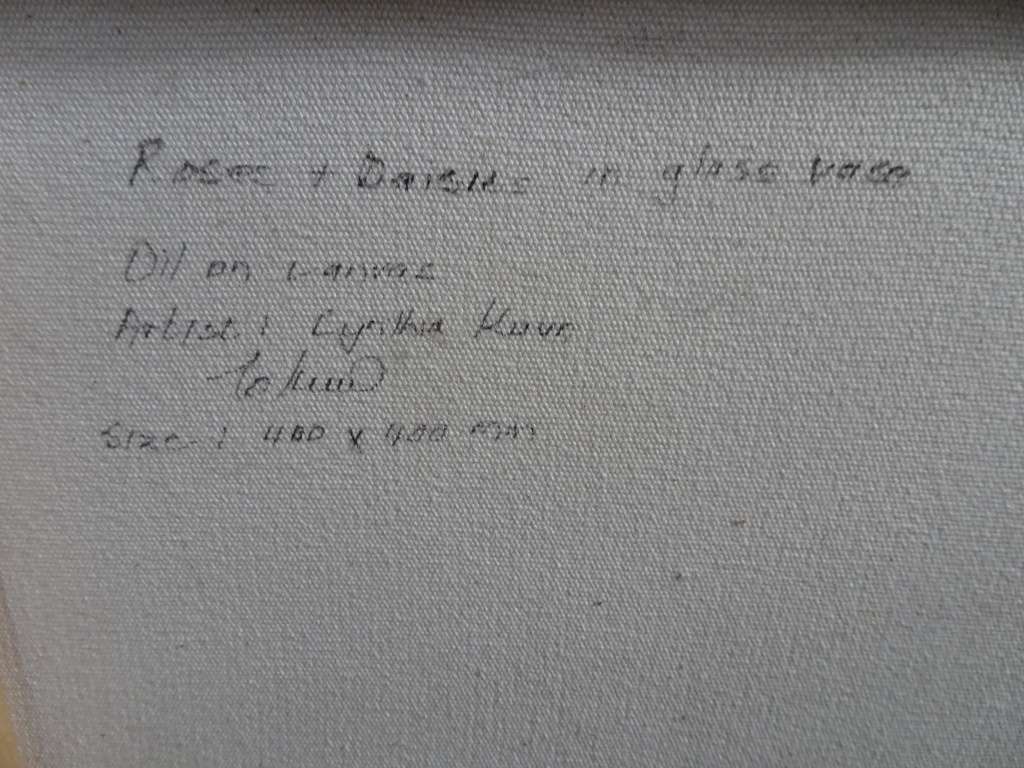 Roses + Daisies in glass vase
Oil on canvas
Artist: Cynthia
Size: 400 x 400 mm